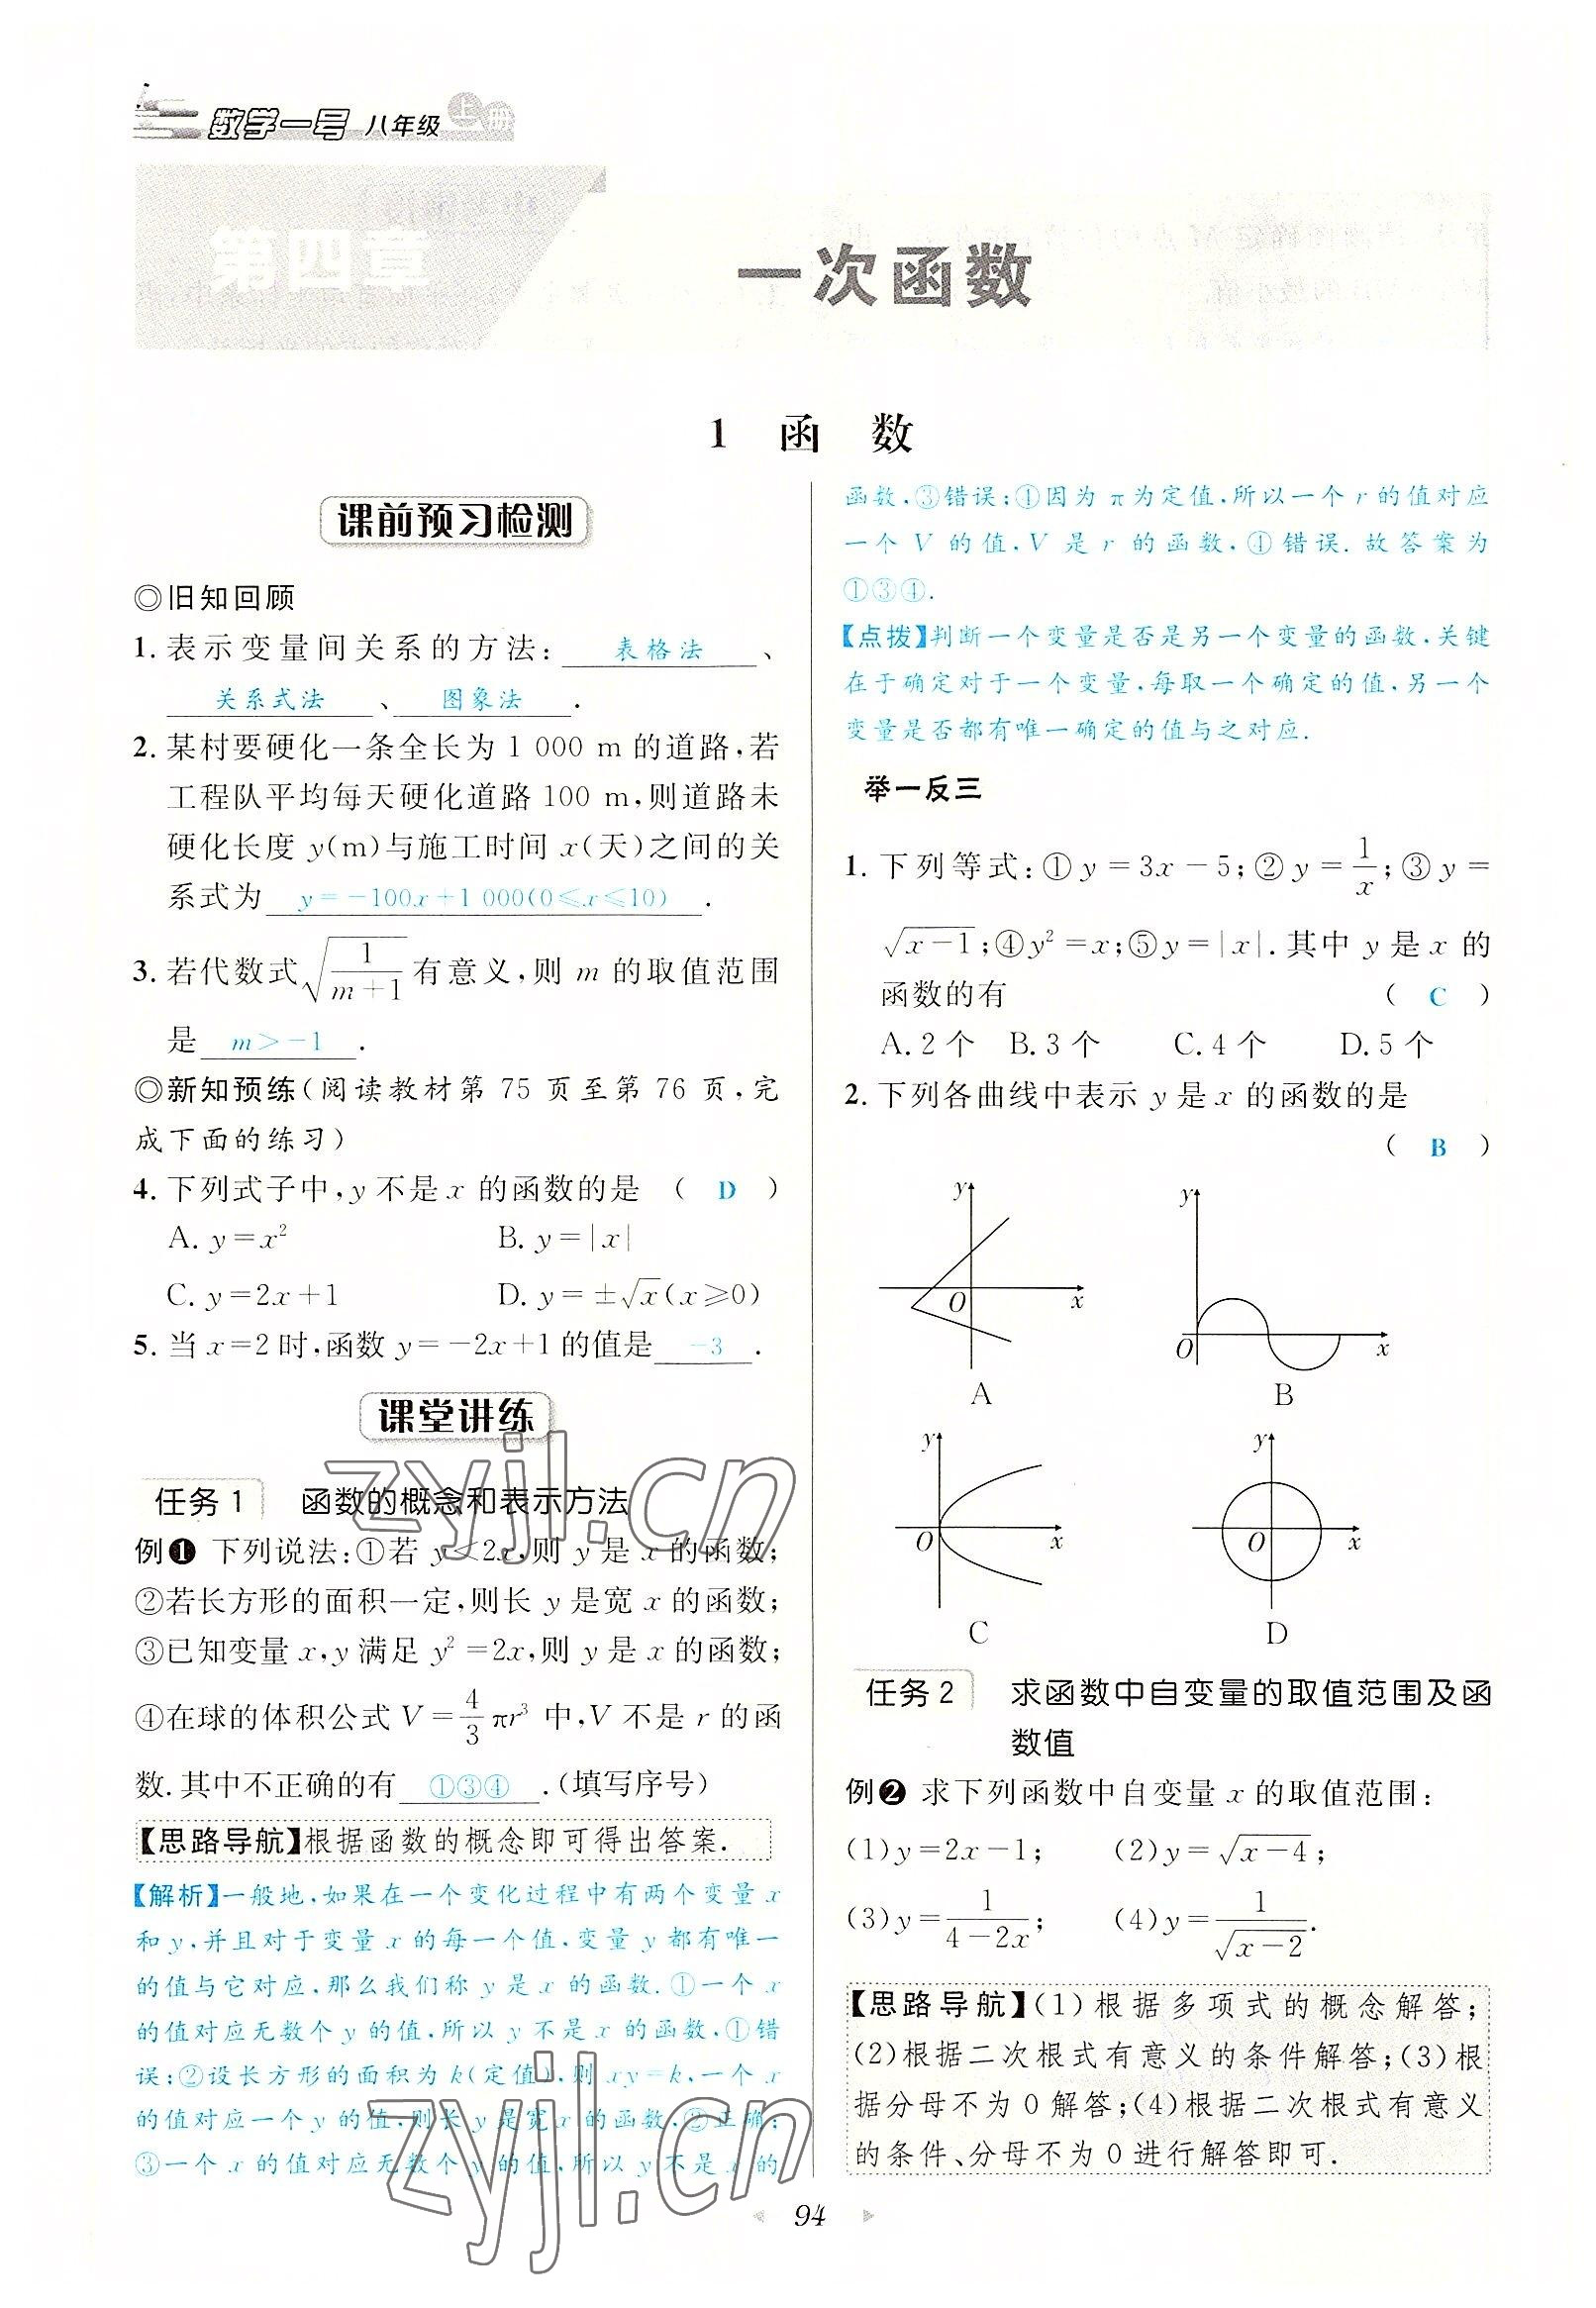 数学一号 八年级 上册
第四章
一次函数
1 函 数
课前预习检测
◎旧知回顾
1. 表示变量间关系的方法: 表格法 、
关系式法 、 图象法 .
2. 某村要硬化一条全长为 1 000 m 的道路,若
工程队平均每天硬化道路 100 m,则道路未
硬化长度 y(m)与施工时间 x(天)之间的关
系式为 y=-100x+1 000(0≤x≤10) .
3. 若代数式√(1/(m+1))有意义,则 m 的取值范围
是 m>-1 .
◎新知预练(阅读教材第 75 页至第 76 页,完
成下面的练习)
4. 下列式子中,y 不是 x 的函数的是 ( D )
A. y=x² B. y=|x|
C. y=2x+1 D. y=±√x(x≥0)
5. 当 x=2 时,函数 y=-2x+1 的值是 -3 .
课堂讲练
任务1 函数的概念和表示方法
例❶ 下列说法:①若 y<2x,则 y 是 x 的函数;
②若长方形的面积一定,则长 y 是宽 x 的函数;
③已知变量 x,y 满足 y²=2x,则 y 是 x 的函数;
④在球的体积公式 V=4/3 πr³ 中,V 不是 r 的函
数.其中不正确的有 ①③④ .(填写序号)
【思路导航】根据函数的概念即可得出答案.
【解析】一般地,如果在一个变化过程中有两个变量 x
和 y,并且对于变量 x 的每一个值,变量 y 都有唯一
的值与它对应,那么我们称 y 是 x 的函数.①一个 x
的值对应无数个 y 的值,所以 y 不是 x 的函数,①错
误;②设长方形的面积为 k(定值),则 xy=k,一个 x
的值对应一个 y 的值,则长 y 是宽 x 的函数,②正确;
③一个 x 的值对应无数个 y 的值,所以 y 不是 x 的
函数,③错误;④因为 π 为定值,所以一个 r 的值对应
一个 V 的值,V 是 r 的函数,④错误.故答案为
①③④.
【点拨】判断一个变量是否是另一个变量的函数,关键
在于确定对于一个变量,每取一个确定的值,另一个
变量是否都有唯一确定的值与之对应.
举一反三
1. 下列等式:①y=3x-5;②y=1/x;③y=
√(x-1);④y²=x;⑤y=|x|.其中 y 是 x 的
函数的有 ( C )
A. 2 个 B. 3 个 C. 4 个 D. 5 个
2. 下列各曲线中表示 y 是 x 的函数的是
( B )
y
O
x
A
y
O
x
B
y
O
x
C
y
O
x
D
任务2 求函数中自变量的取值范围及函
数值
例❷ 求下列函数中自变量 x 的取值范围:
(1)y=2x-1; (2)y=√(x-4);
(3)y=1/(4-2x); (4)y=1/√(x-2).
【思路导航】(1)根据多项式的概念解答;
(2)根据二次根式有意义的条件解答;(3)根
据分母不为 0 解答;(4)根据二次根式有意义
的条件、分母不为 0 进行解答即可.
94
zyjl.cn
zyjl.cn